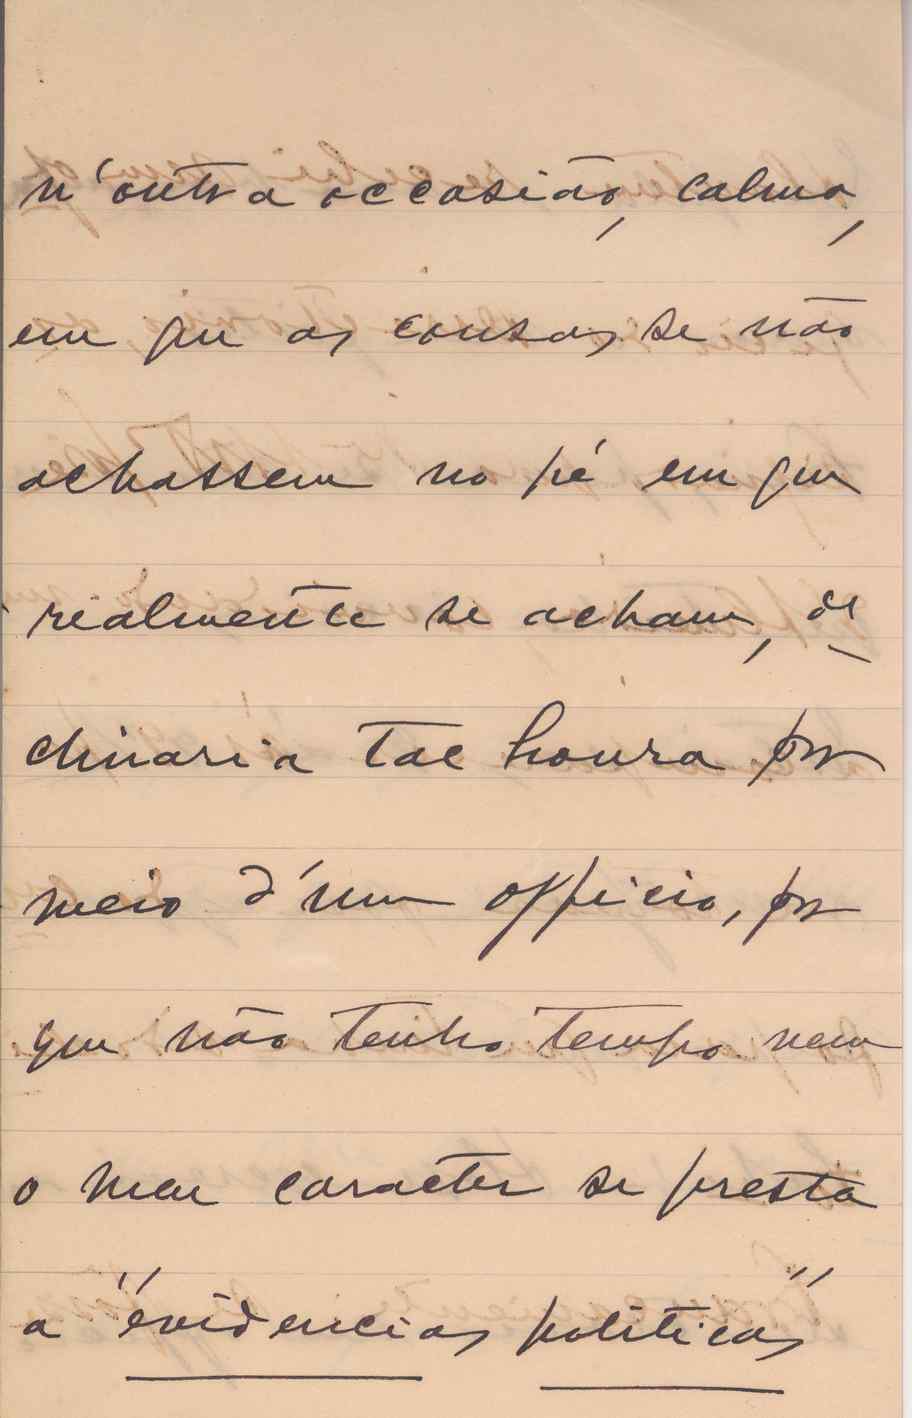 n'outra occasião, calma,
em que as cousas se não
achassem no pé em que
realmente se acham, de
clinaria tal honra por
meio d'um officio, por
que não tenho tempo nem
o meu caracter se presta
a "evidencias politicas"